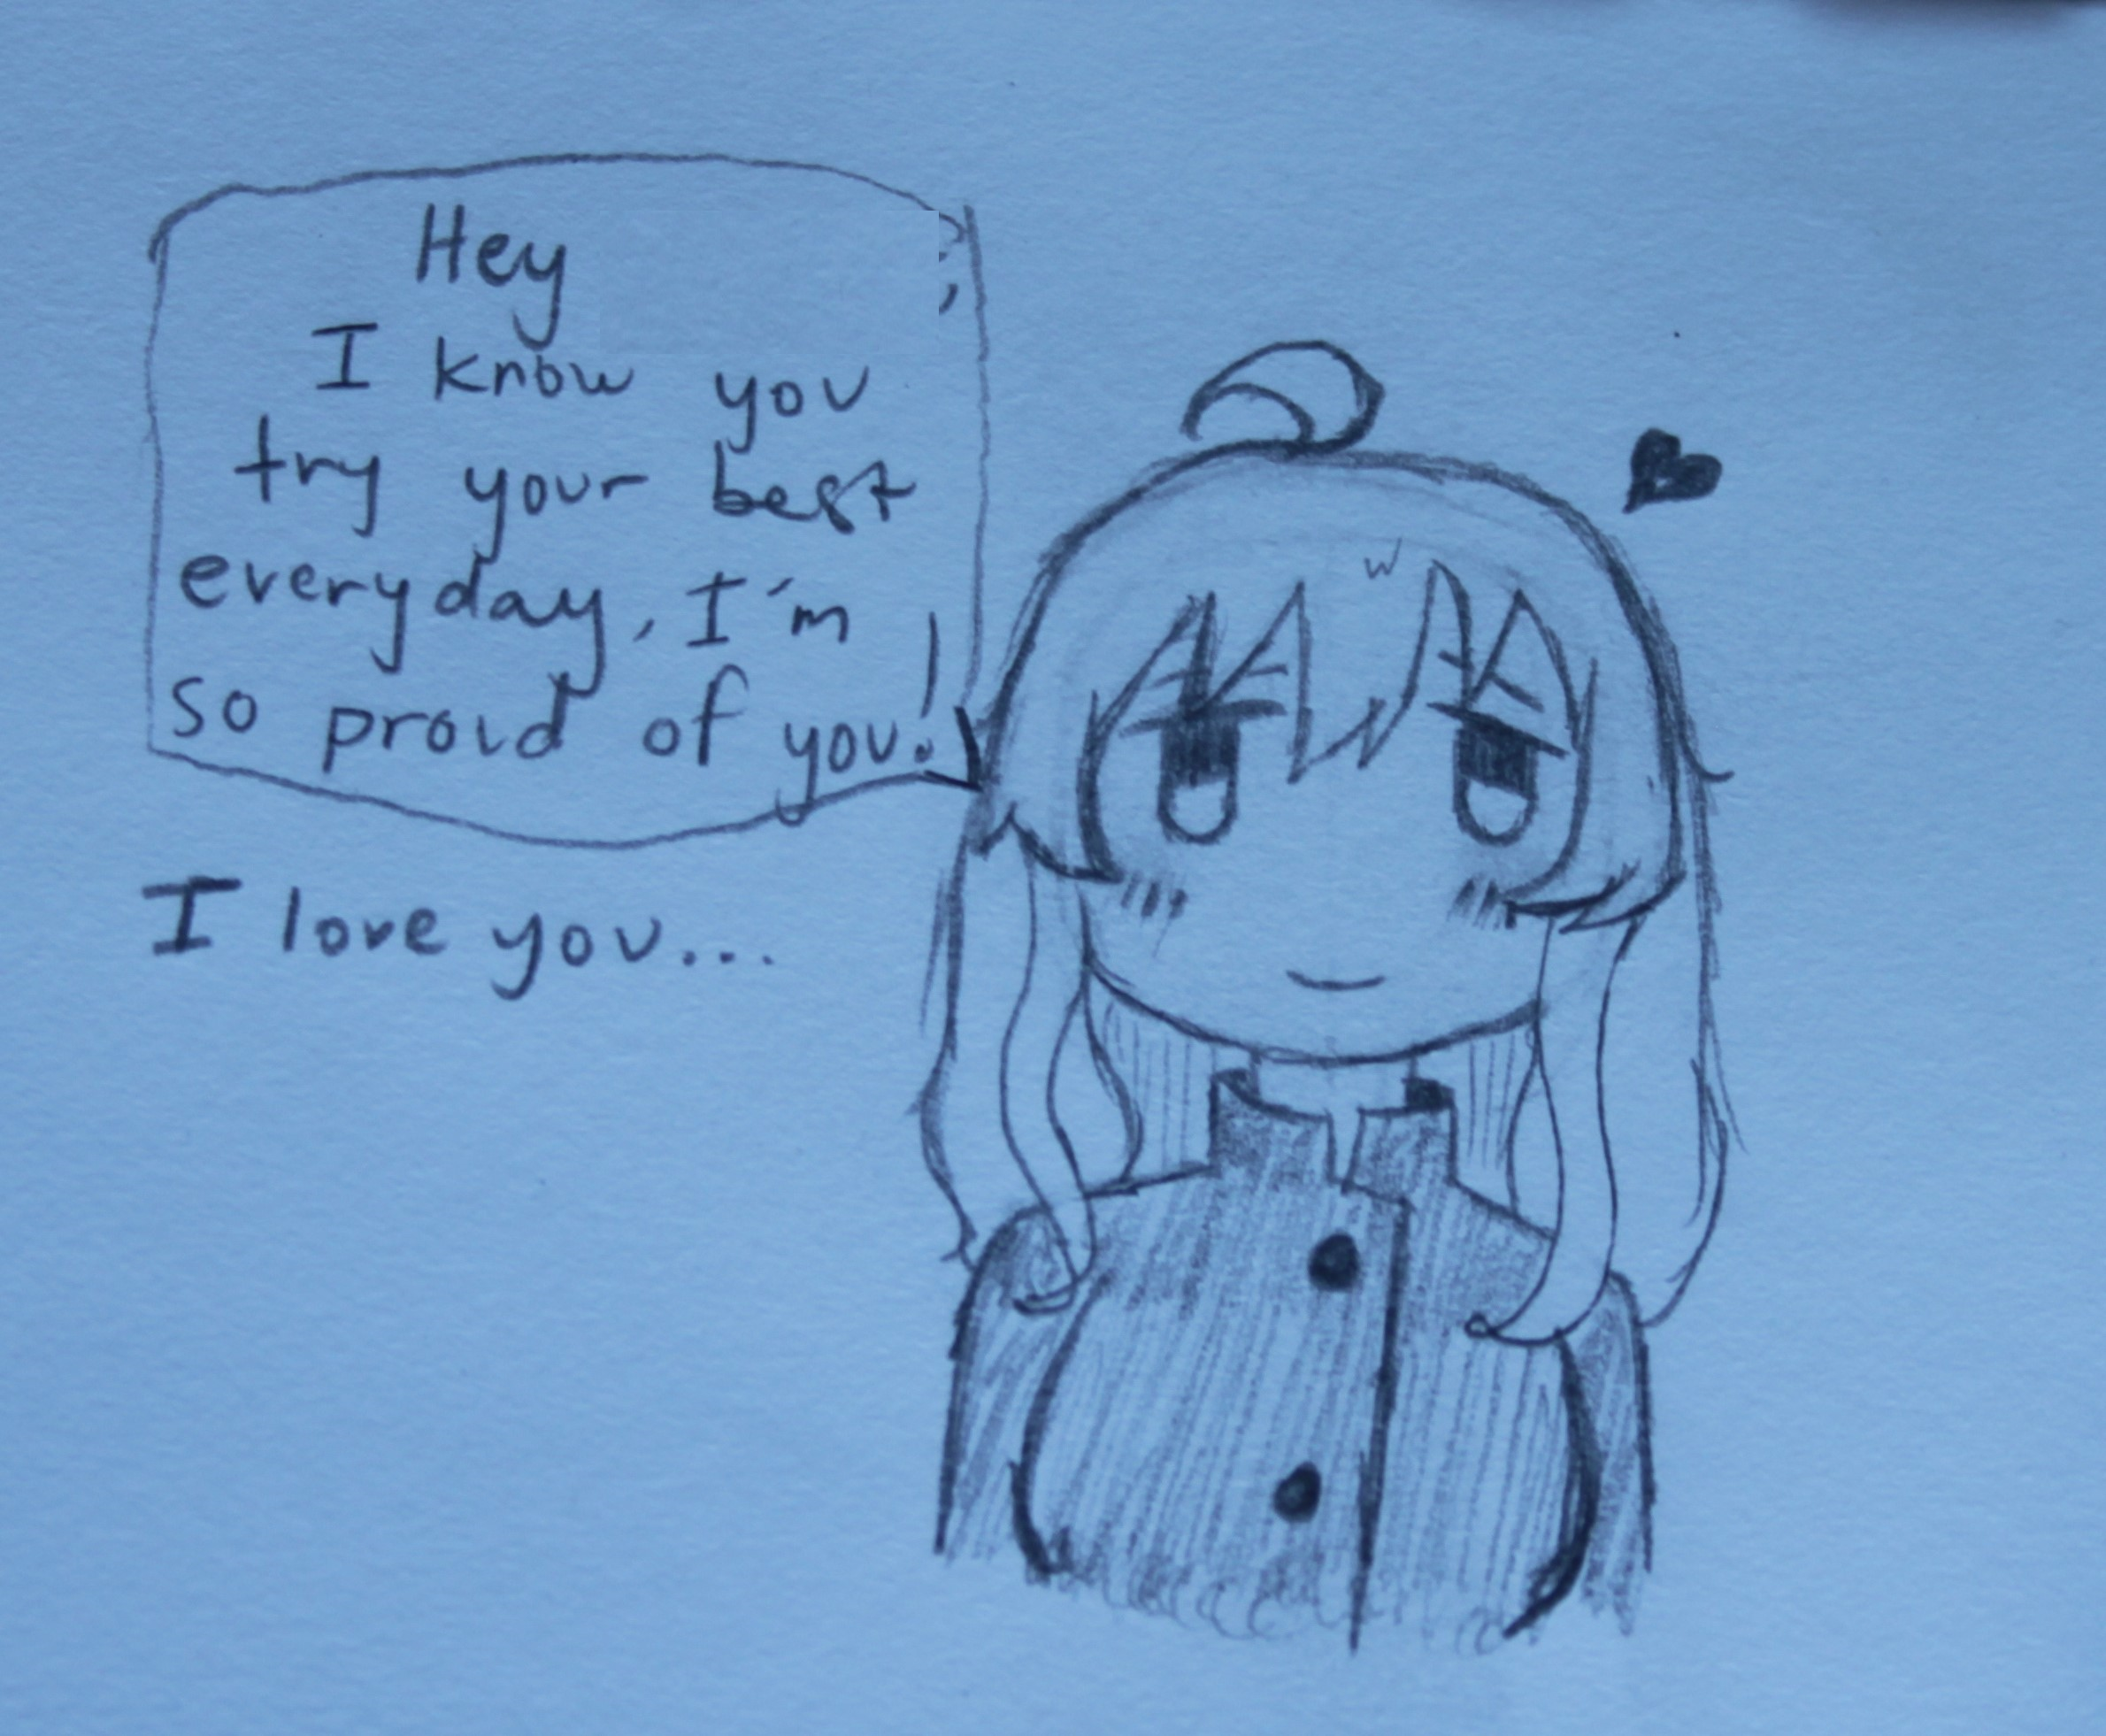 Hey
I know you
try your best
everyday, I'm
so proud of you!
I love you...
w